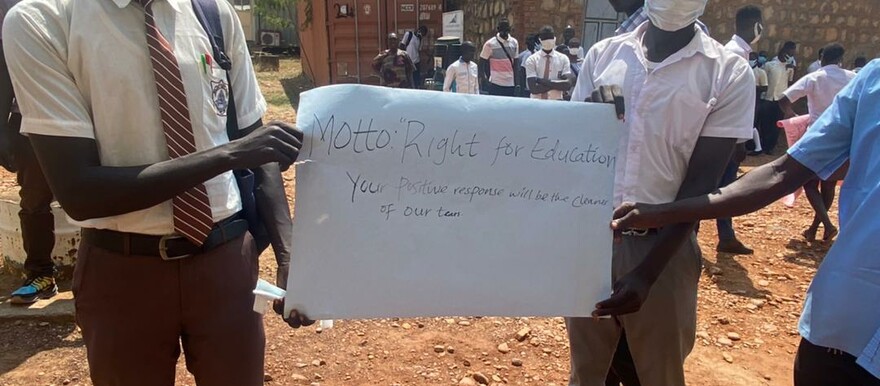 Motto: "Right for Education
Your positive response will be the cleaner
of our tears